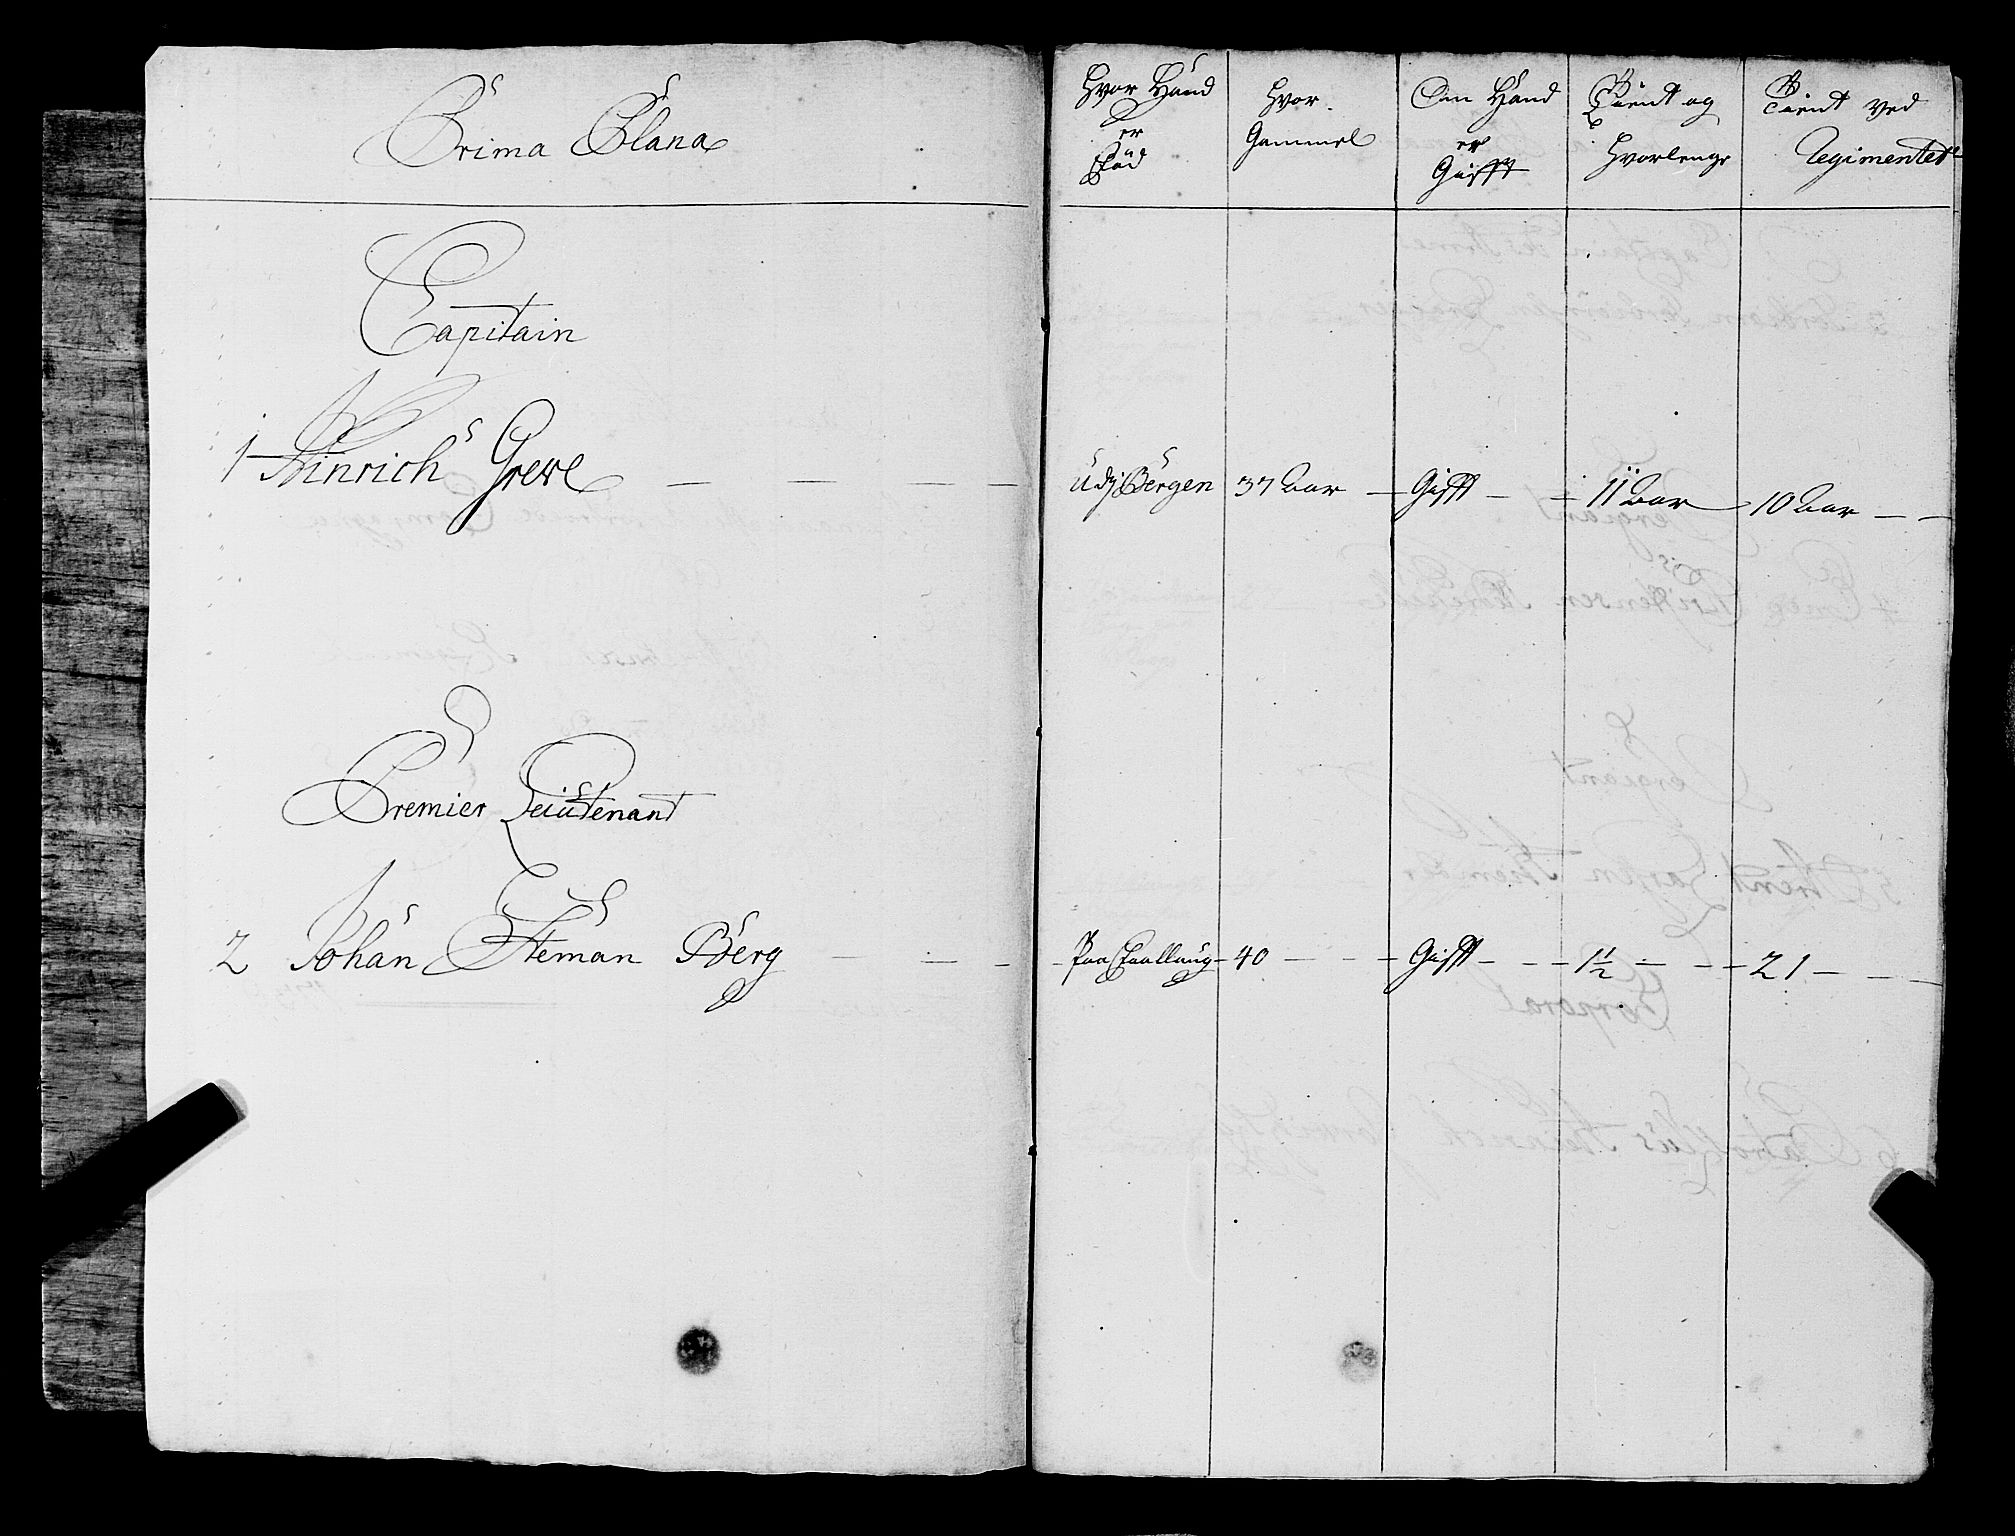 Prima Plana
Capitain
1 Hinrich Greve
Premier Leiutenant
2 Johan Steman Berg
Hvor Hand
er
fød
Hvor
Gammel
Om Hand
er
Gifft
Tient og
Hvorlenge
Tient ved
Regimentet
Udj Bergen 37 Aar Gifft 11 Aar 10 Aar
Paa 40 Gifft 1 1/2 21